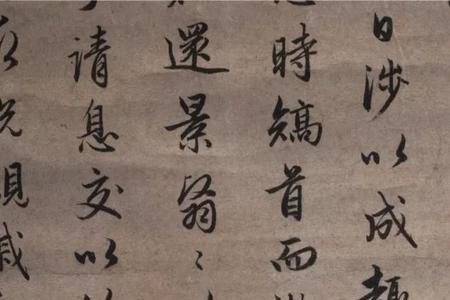 日涉以成趣
時矯首而
還景翳〻
請息交以
悅親戚